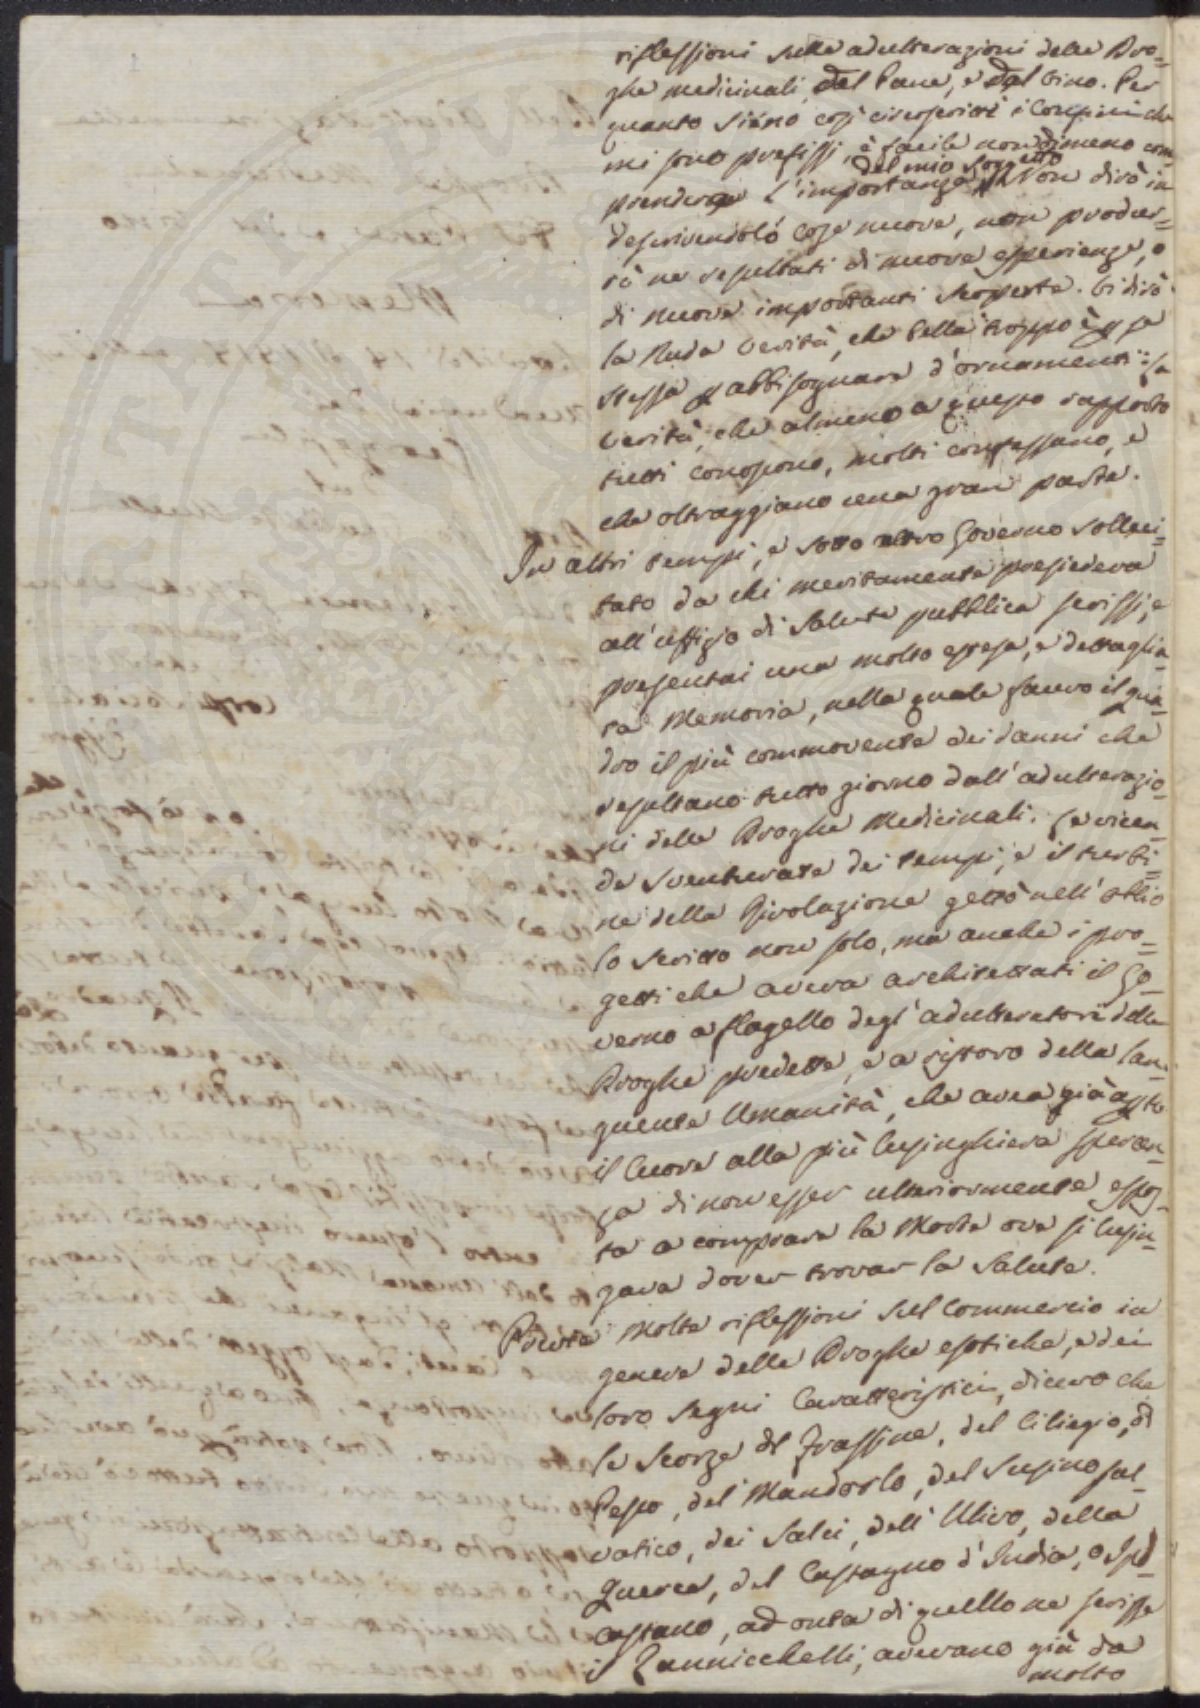 riflessioni sulle adulterazioni delle Dro=
ghe medicinali, del Pane, e del vino. Per
quanto siano così circoscritti i Confini che
mi sono prefissi, è facile non dimeno com=
prendere l'importanza del mio soggetto. Non dirò in
descrivendolo cose nuove, non produr=
rò ne resultati di nuove esperienze, o
di nuove importanti scoperte. Vi dirò
la Nuda verità, che bella troppo è per se
stessa p abbisognare d'ornamenti: la
verità, che almeno a questo rapporto
tutti conoscono, molti confessano, e
che oltraggiano una gran parte.
In altri tempi, e sotto altro Governo solleci=
tato da chi meritamente presiedeva
all'uffizio di Salute pubblica scrissi, e
presentai una molto estesa, e dettaglia=
ta Memoria, nella quale facevo il qua=
dro il più commovente dei danni che
resultano tutto giorno dall'adulterazio=
ni delle Droghe Medicinali. Le vicen=
de sventurate dei tempi, e il turbi=
ne della Rivoluzione gettò nell'oblio
lo scritto non solo, ma anche i pro=
getti che aveva architettati il Go=
verno a flagello degl'adulteratori delle
Droghe predette, e a ristoro della lan=
guente Umanità, che avea già aperto
il Cuore alla più lusinghiera speran=
za di non esser ulteriormente espos=
ta a comprare la Morte ove si lusin=
gava dover trovar la Salute.
molte riflessioni sul Commercio in
genere delle Droghe esotiche, e dei
loro segni Caratteristici, dicevo che
le Scorze del Frassine, del Ciliegio, di
Pesco, del Mandorlo, del Susino sal=
vatico, dei Salci, dell'Ulivo, della
Querce, del Castagno d'India, o Ippo
castano, ad onta di quello ne scrisse
il Zannichelli, avevano già da
molto